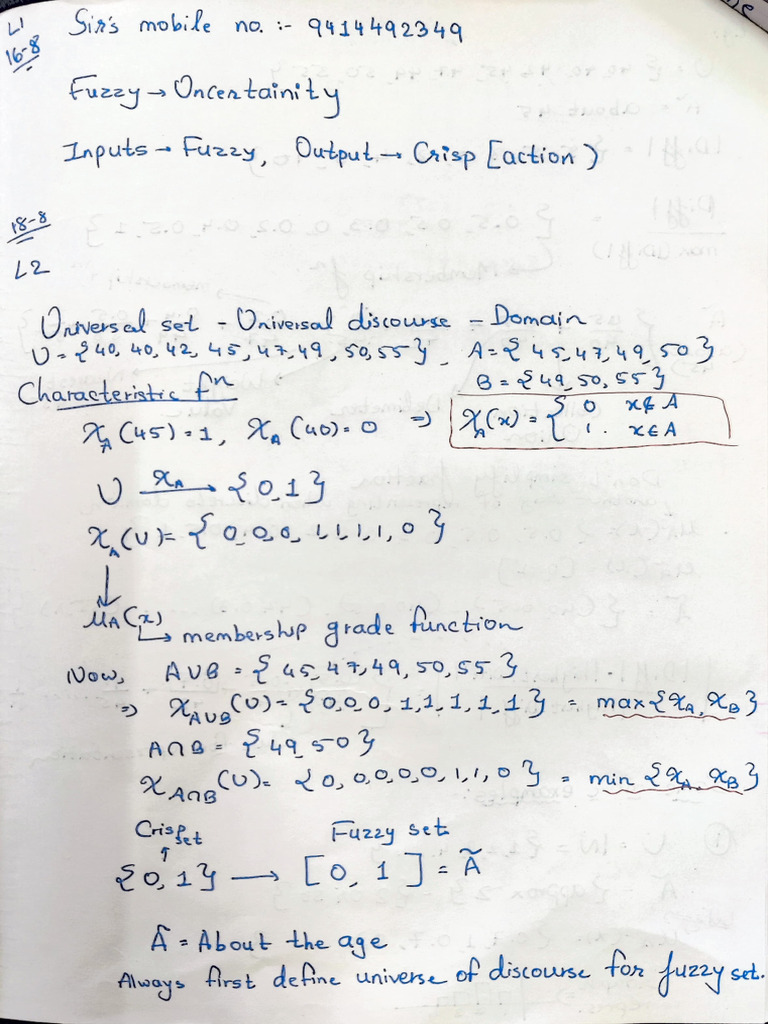 L1
16-8
Sir's mobile no. :- 9414492349
Fuzzy → Uncertainity
Inputs → Fuzzy, Output → Crisp [action)
18-8
L2
Universal set - Universal discourse = Domain
U = {40, 40, 42, 45, 47, 49, 50, 55}, A = {45, 47, 49, 50}
B = {49, 50, 55}
Characteristic fⁿ
χ_A (45) = 1, χ_A (40) = 0 ⇒ χ_A(x) = { 0 x∉A
1. x∈A
U —χ_A→ {0, 1}
χ_A(U) = {0, 0, 0, 1, 1, 1, 1, 0}
↓
μ_A(x)
↳ membership grade function
Now, A∪B = {45, 47, 49, 50, 55}
⇒ χ_A∪B (U) = {0, 0, 0, 1, 1, 1, 1, 1} = max{χ_A, χ_B}
A∩B = {49, 50}
χ_A∩B (U) = {0, 0, 0, 0, 0, 1, 1, 0} = min {χ_A, χ_B}
Crisp set Fuzzy set
{0, 1} → [0, 1] = Ã
Ã = About the age
Always first define universe of discourse for fuzzy set.